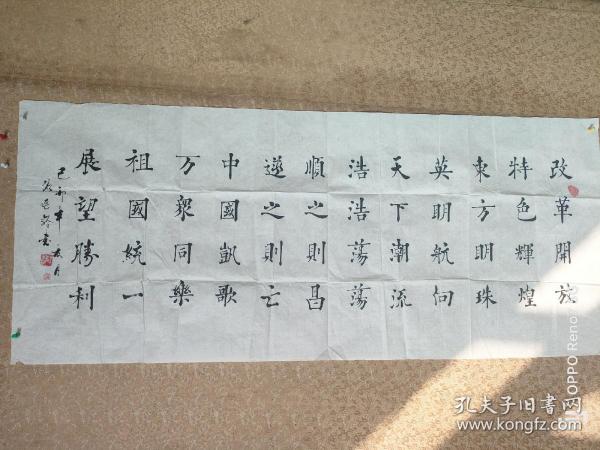 改革開放
特色輝煌
東方明珠
英明航向
天下潮流
浩浩蕩蕩
順之則昌
逆之則亡
中國凱歌
万眾同樂
祖國統一
展望勝利
己卯年
OPPO Reno
孔夫子旧书网
www.kongfz.com